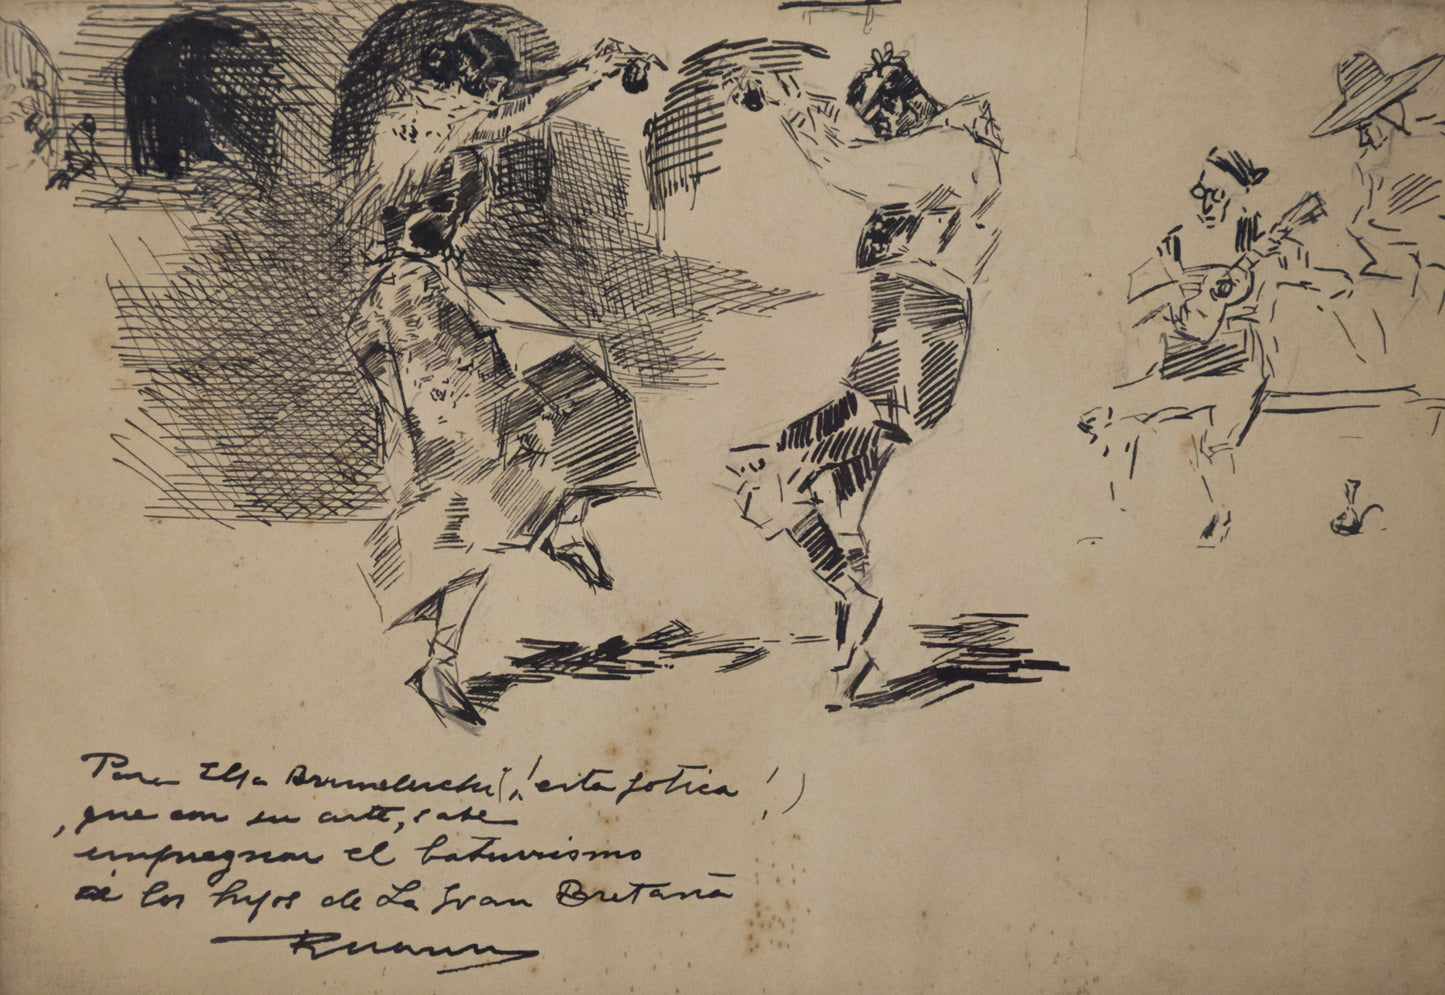 Para Elsa Brunelleschi (¡esta gotica!)
, que con su arte, sabe
impregnar el baturrismo
a los hijos de La Gran Bretaña